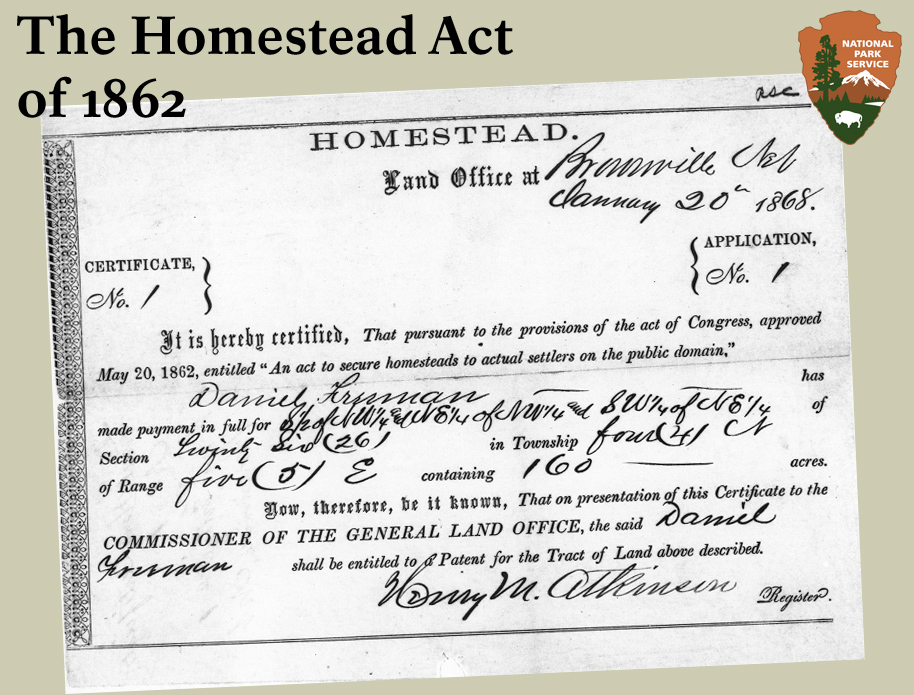 The Homestead Act
of 1862
NATIONAL
PARK
SERVICE
HOMESTEAD.
Land Office at Brownville Neb
January 20th 1868.
CERTIFICATE,
No. 1
APPLICATION,
No. 1
It is hereby certified, That pursuant to the provisions of the act of Congress, approved
May 20, 1862, entitled "An act to secure homesteads to actual settlers on the public domain,"
Daniel Freeman has
made payment in full for S½ of NW¼ and NE¼ of NW¼ and SW¼ of NE¼ of
Section Twenty Six (26) in Township four (4) N
of Range five (5) E containing 160 acres.
Now, therefore, be it known, That on presentation of this Certificate to the
COMMISSIONER OF THE GENERAL LAND OFFICE, the said Daniel
Freeman shall be entitled to a Patent for the Tract of Land above described.
Henry M. Atkinson
Register.